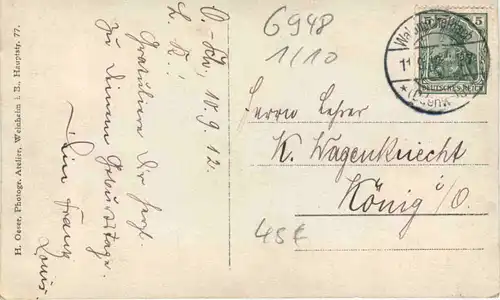 H. Oeser, Photogr. Atelier, Weinheim i. B., Hauptstr. 77.
10.9.12.
L. K.!
Gratuliere Dir herzl.
zu Deinem Geburtstage.
Dein Franz
Louis
6948
1/10
5 5
DEUTSCHES REICH
11
(Odenw.
Herrn Lehrer
K. Wagenknecht
König i/O.
45€